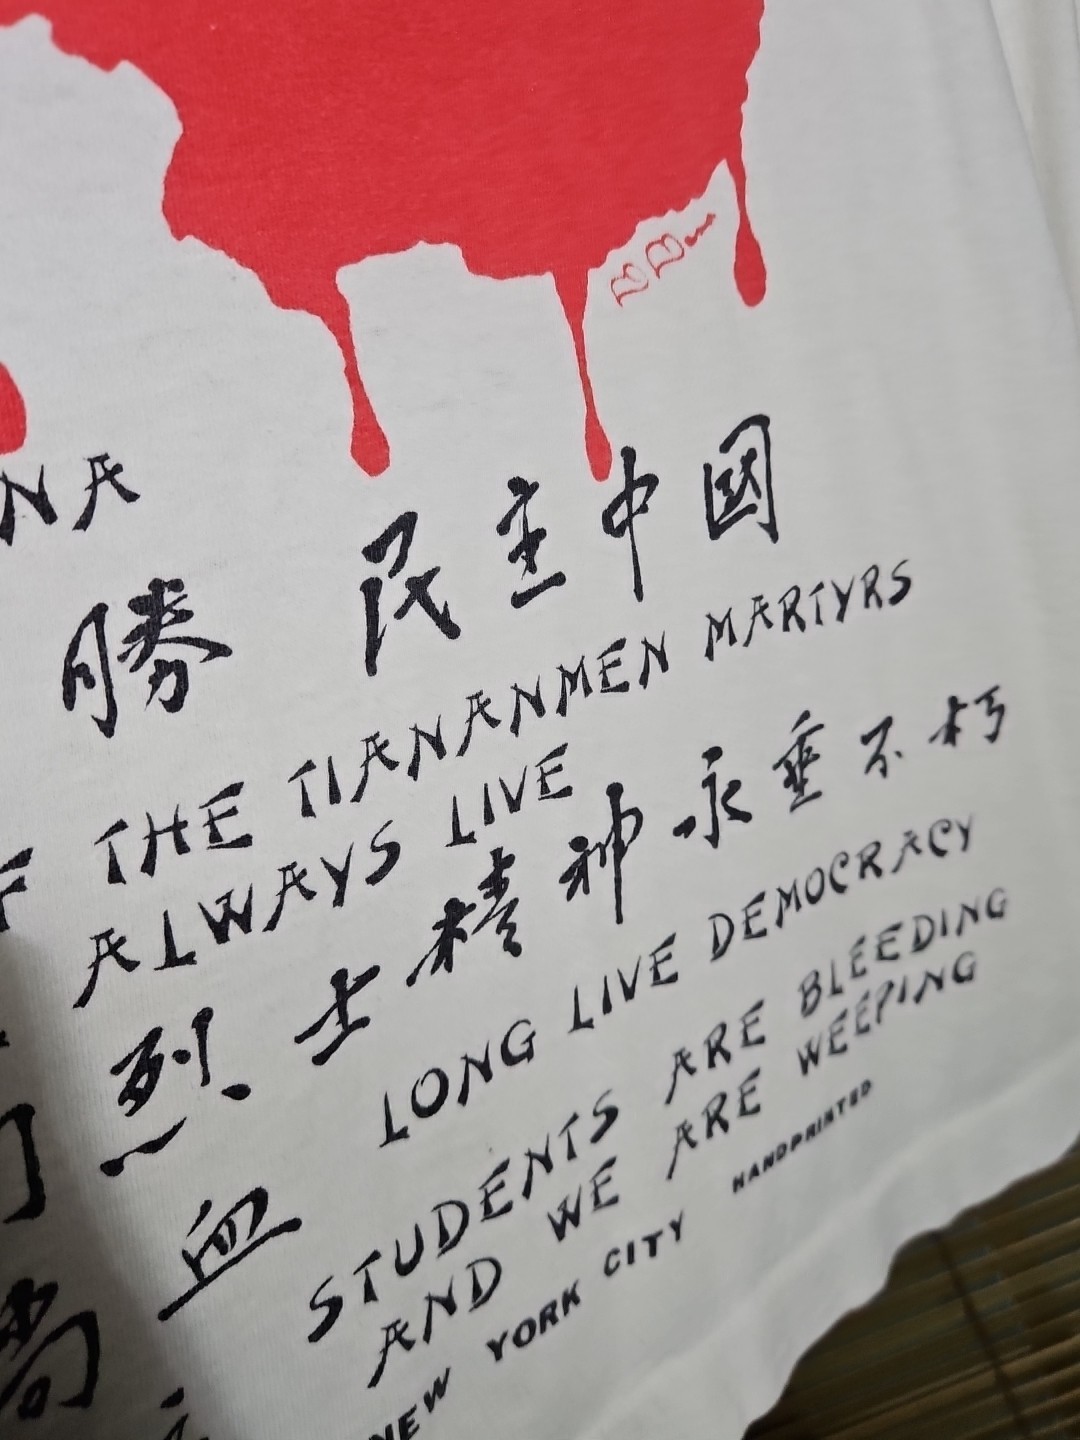 NA
勝 民主中國
THE TIANANMEN MARTYRS
ALWAYS LIVE
烈士精神永垂不朽
LONG LIVE DEMOCRACY
血
STUDENTS ARE BLEEDING
AND WE ARE WEEPING
NEW YORK CITY HANDPRINTED